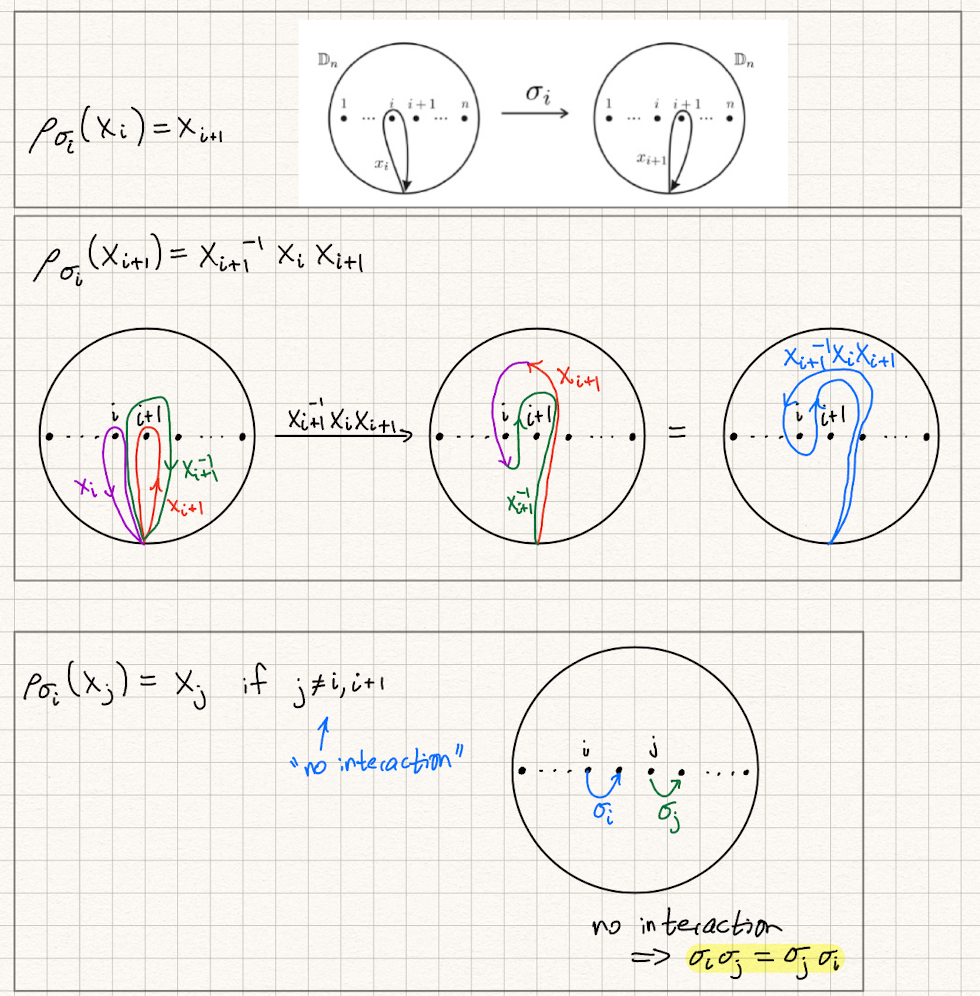 ρ_{σ_i}(x_i) = x_{i+1}
𝔻_n 𝔻_n
1 ... i i+1 ... n
x_i
σ_i
1 ... i i+1 ... n
x_{i+1}
ρ_{σ_i}(x_{i+1}) = x_{i+1}^{-1} x_i x_{i+1}
i i+1
x_i x_{i+1}^{-1}
x_{i+1}
x_{i+1}^{-1} x_i x_{i+1}
x_{i+1}
i i+1
x_{i+1}^{-1}
=
x_{i+1}^{-1} x_i x_{i+1}
i i+1
ρ_{σ_i}(x_j) = x_j if j≠i, i+1
"no interaction"
i j
σ_i σ_j
no interaction
=> σ_i σ_j = σ_j σ_i